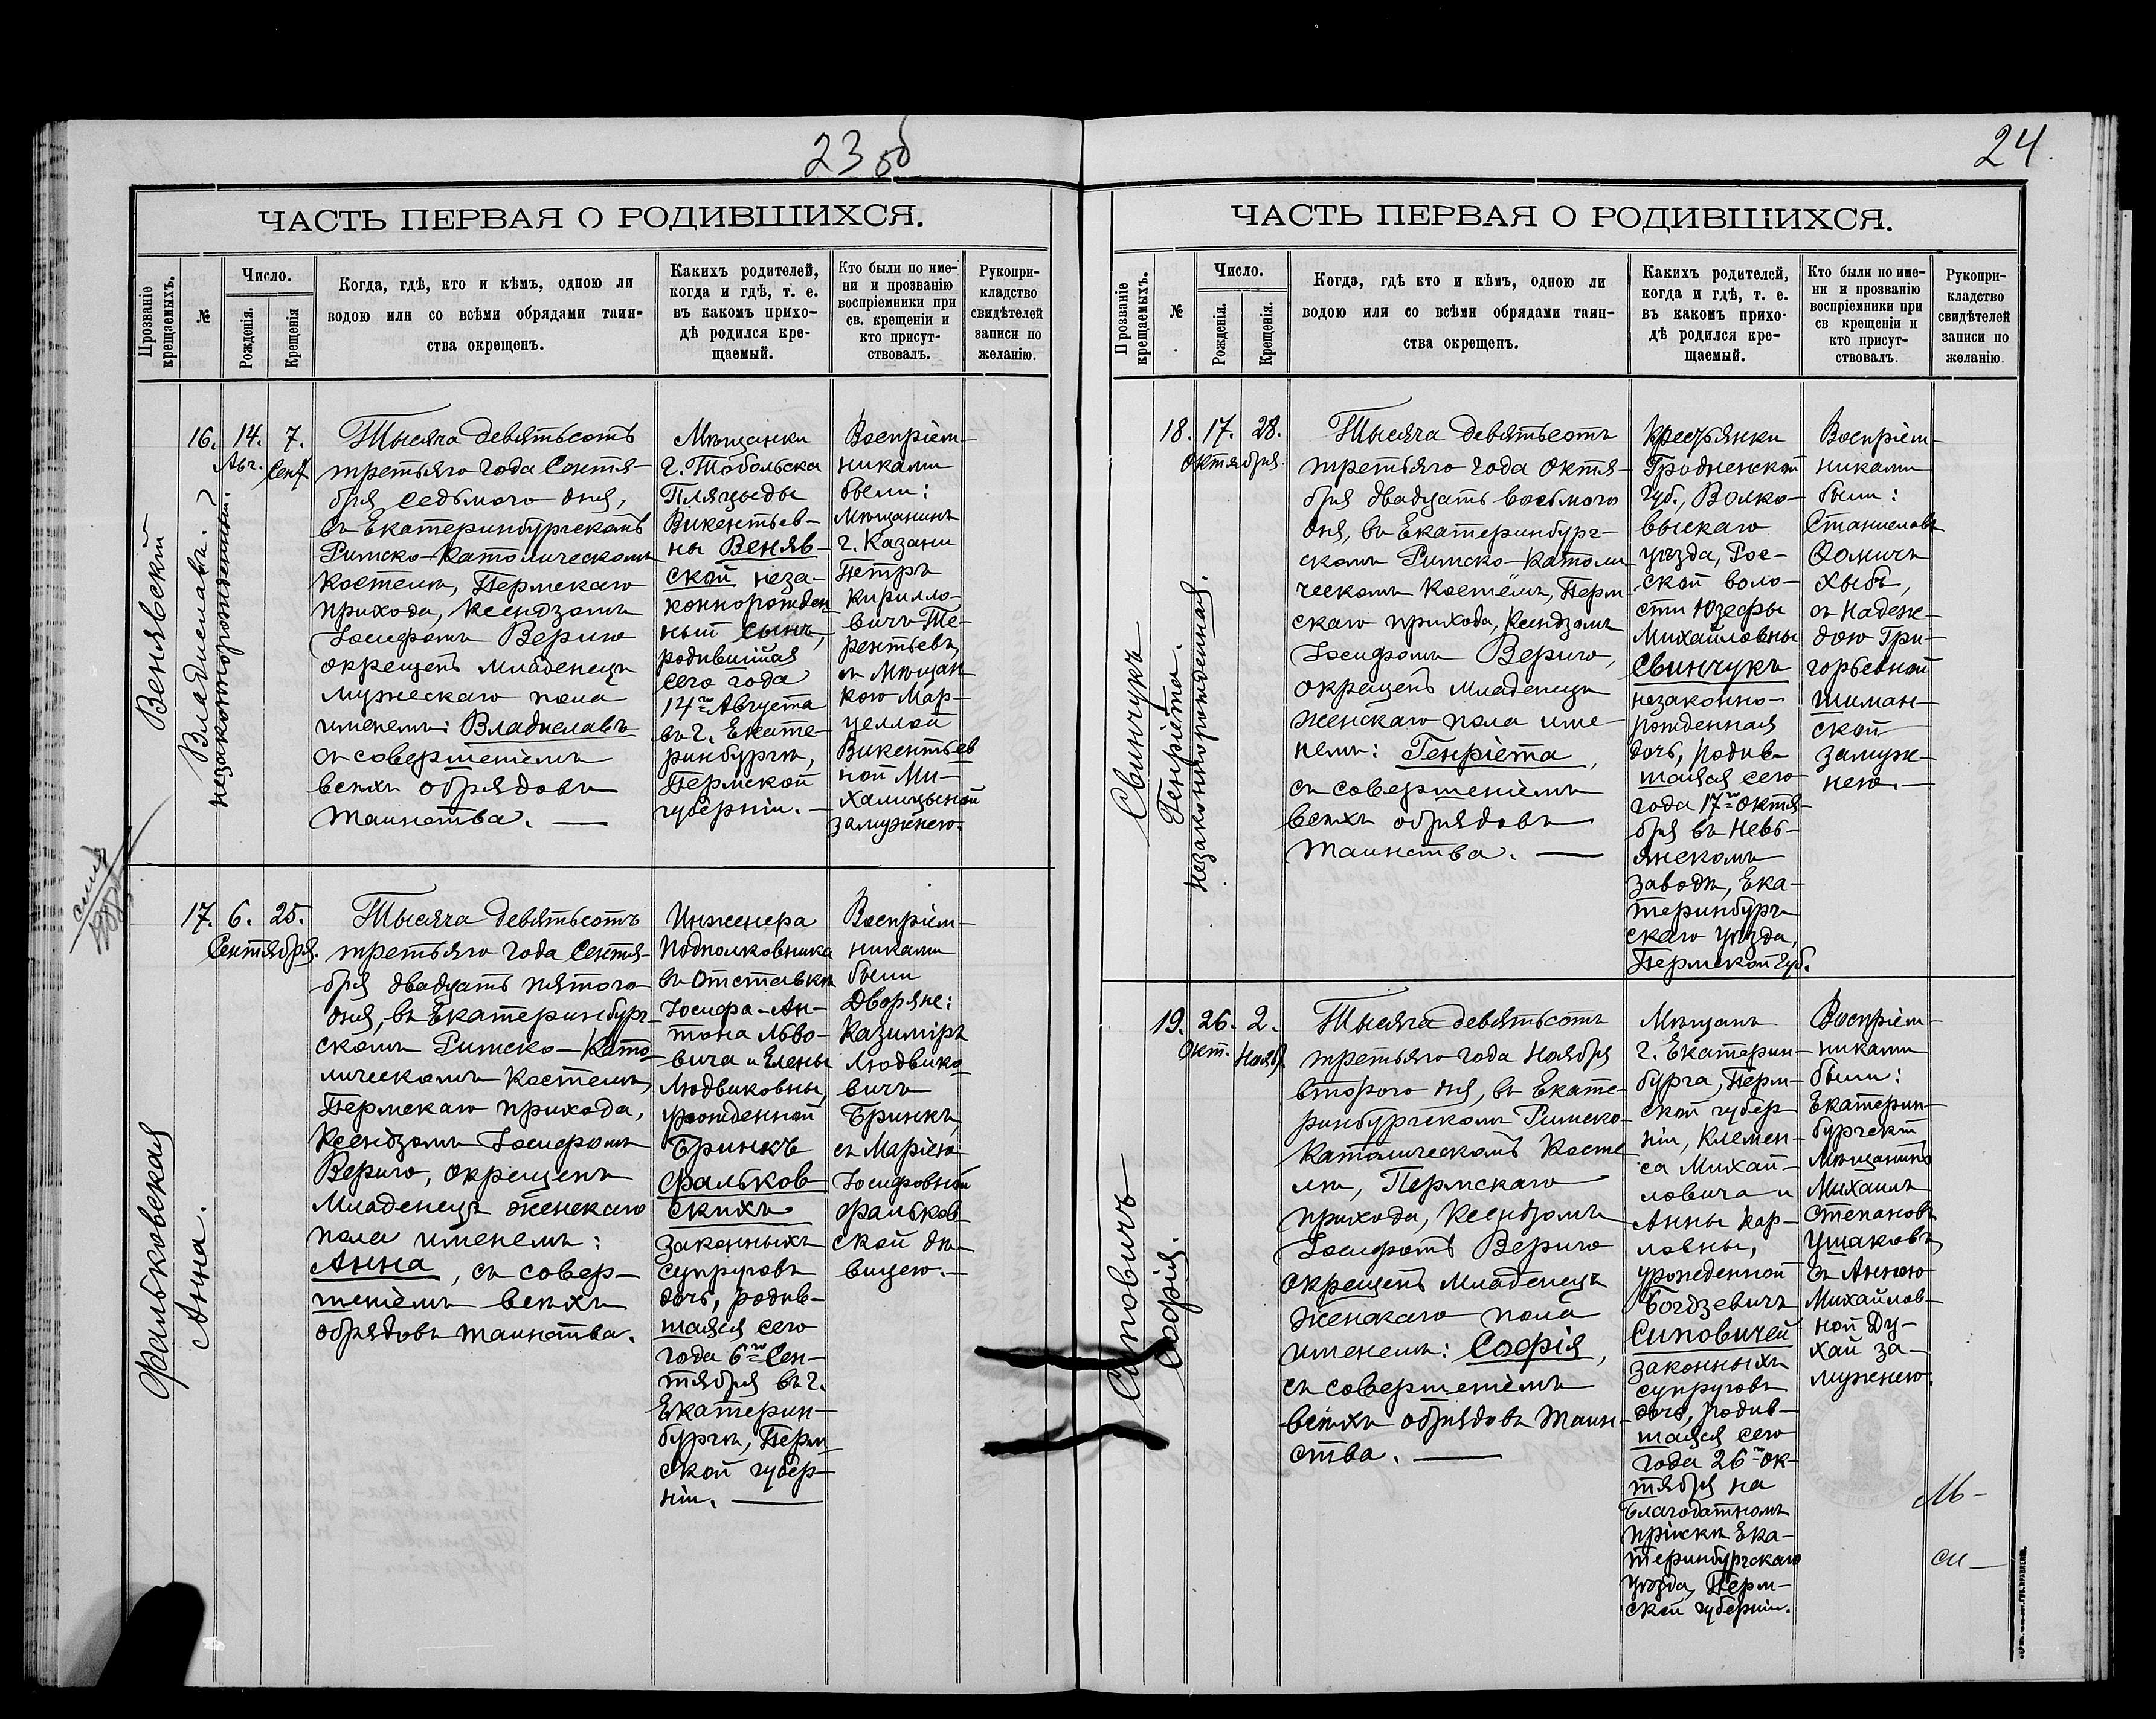 23 об
ЧАСТЬ ПЕРВАЯ О РОДИВШИХСЯ.
Прозваніе
крещаемыхъ.
№
Число.
Рожденія.
Крещенія
Когда, гдѣ, кто и кѣмъ, одною ли
водою или со всѣми обрядами таин-
ства окрещенъ.
Какихъ родителей,
когда и гдѣ, т. е.
въ какомъ прихо-
дѣ родился кре-
щаемый.
Кто были по име-
ни и прозванію
воспріемники при
св. крещеніи и
кто присут-
ствовалъ.
Рукопри-
кладство
свидѣтелей
записи по
желанію.
Венявскій
Владиславъ.
незаконнорожденный.
16.
14.
Авг.
7.
Сент.
Тысяча девятьсотъ
третьяго года Сентя-
бря седьмого дня,
въ Екатеринбургскомъ
Римско-Католическомъ
Костелѣ, Пермскаго
прихода, Ксендзомъ
Іосифомъ Вериго
окрещенъ младенецъ
мужескаго пола
именемъ: Владиславъ
съ совершеніемъ
всѣхъ обрядовъ
таинства. —
Мѣщанки
г. Тобольска
Пляцыды
Викентьев-
ны Веняв-
ской неза-
коннорожден
ный сынъ,
родившійся
сего года
14го Августа
въ г. Екате-
ринбургѣ,
Пермской
губерніи. —
Воспріем-
никами
были:
Мѣщанинъ
г. Казани
Петръ
Кирилло-
вичъ Те-
рентьевъ
съ Мѣщан
кою Мар-
целлой
Викентьев
ной Ми-
халицыной
замужнею.
Фальковская
Анна.
17.
6.
25.
Сентября.
Тысяча девятьсотъ
третьяго года Сентя-
бря двадцать пятого
дня, въ Екатеринбург-
скомъ Римско-Като-
лическомъ Костелѣ,
Пермскаго прихода,
Ксендзомъ Іосифомъ
Вериго, окрещенъ
Младенецъ женскаго
пола именемъ:
Анна, съ совер-
шеніемъ всѣхъ
обрядовъ таинства.
Инженера
Подполковника
въ отставкѣ
Іосифа-Ан-
тона Льво-
вича и Елены
Людвиковны,
урожденной
Бринкъ
Фальков
скихъ
законныхъ
супруговъ
дочь, родив-
шаяся сего
года 6го Сен-
тября въ г.
Екатерин-
бургѣ, Перм
ской губер-
ніи. —
Воспріем-
никами
были
Дворяне:
Казиміръ
Людвико-
вичъ
Бринкъ
съ Маріею
Іосифовной
Фальков-
ской дѣ-
вицею. —
24.
ЧАСТЬ ПЕРВАЯ О РОДИВШИХСЯ.
Прозваніе
крещаемыхъ.
№
Число.
Рожденія.
Крещенія.
Когда, гдѣ кто и кѣмъ, одною ли
водою или со всѣми обрядами таин-
ства окрещенъ.
Какихъ родителей,
когда и гдѣ, т. е.
въ какомъ прихо-
дѣ родился кре-
щаемый.
Кто были по име-
ни и прозванію
воспріемники при
св крещеніи и
кто присут-
ствовалъ.
Рукопри-
кладство
свидѣтелей
записи по
желанію.
Свинчукъ
Генріета.
незаконнорожденная.
18.
17.
28.
Октября.
Тысяча девятьсотъ
третьяго года Октя-
бря двадцать восьмого
дня, въ Екатеринбург-
скомъ Римско-Католи
ческомъ Костёлѣ, Перм
скаго прихода, Ксендзомъ
Іосифомъ Вериго,
окрещенъ Младенецъ
женскаго пола име-
немъ: Генріета,
съ совершеніемъ
всѣхъ обрядовъ
таинства. —
Крестьянки
Гродненской
губ., Волко-
выскаго
уѣзда, Рос-
ской воло-
сти Юзефы
Михайловны
Свинчукъ
незаконно-
рожденная
дочь, родив-
шаяся сего
года 17го Октя-
бря въ Невь-
янскомъ
заводѣ, Ека-
теринбург
скаго уѣзда,
Пермской губ.
Воспріем-
никами
были:
Станиславъ
Ѳомичъ
Хыбъ,
съ Надеж-
дою Гри-
горьевной
Шиман-
ской
замуж-
нею. —
Сиповичъ
Софія.
19.
26.
Окт.
2.
Нояб.
Тысяча девятьсотъ
третьяго года Ноября
второго дня, въ Екате-
ринбургскомъ Римско-
Католическомъ Косте-
лѣ, Пермскаго
прихода, Ксендзомъ
Іосифомъ Вериго
окрещенъ Младенецъ
женскаго пола
именемъ: Софія,
съ совершеніемъ
всѣхъ обрядовъ таин-
ства. —
Мѣщанъ
г. Екатерин-
бурга, Перм-
ской губер
ніи, Клемен-
са Михай-
ловича и
Анны Кар-
ловны,
урожденной
Богдзевичъ
Сиповичей
законныхъ
супруговъ
дочь, родив-
шаяся сего
года 26го Ок-
тября на
Благодатномъ
пріискѣ Ека-
теринбургскаго
уѣзда, Перм-
ской губерніи.
Воспріем-
никами
были:
Екатерин-
бургскій
Мѣщанинъ
Михаилъ
Степановъ
Ушаковъ,
съ Анною
Михайлов-
ной Ду-
хай за-
мужнею.